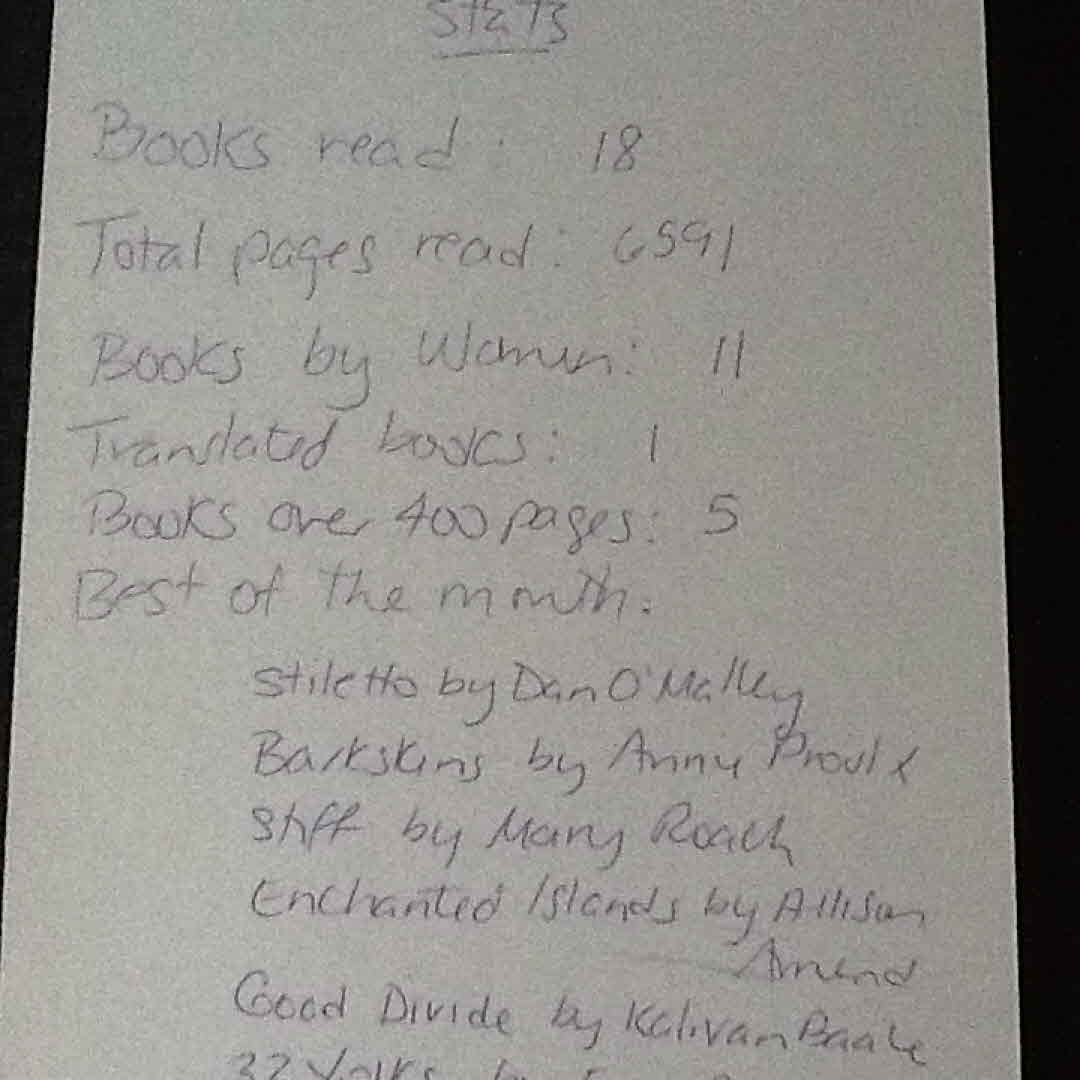 Stats
Books read: 18
Total pages read: 6591
Books by Women: 11
Translated books: 1
Books over 400 pages: 5
Best of the month:
Stiletto by Dan O'Malley
Barkskins by Annie Proulx
Stiff by Mary Roach
Enchanted Islands by Allison
Amend
Good Divide by Kali VanBaale
32 Yolks by